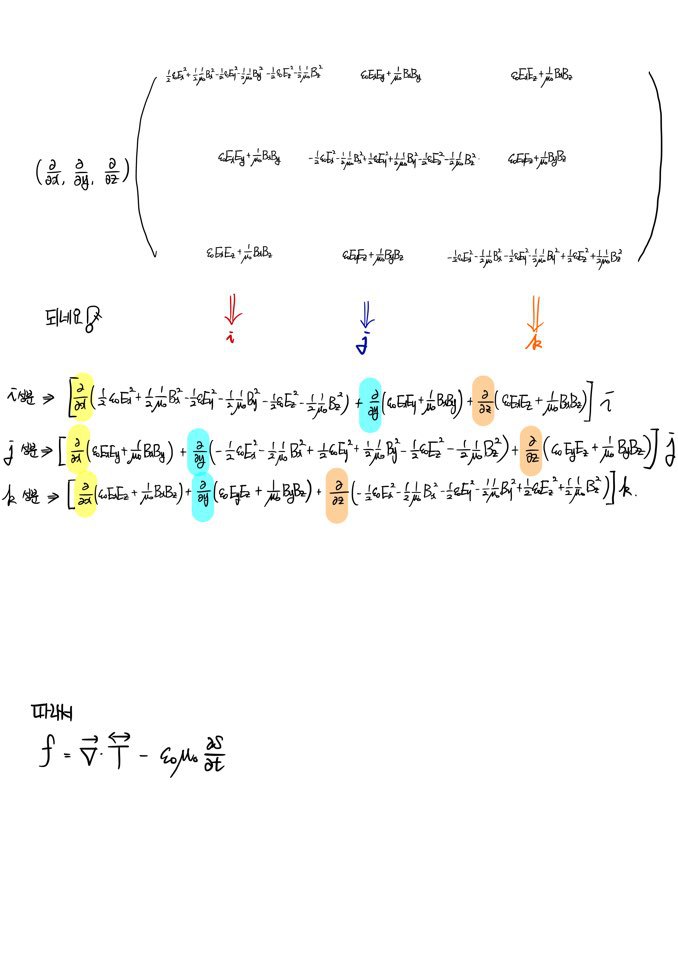 ½ε₀Eₓ²+½1/μ₀Bₓ²-½ε₀Eᵧ²-½1/μ₀Bᵧ²-½ε₀E_z²-½1/μ₀B_z² ε₀EₓEᵧ+1/μ₀BₓBᵧ ε₀EₓE_z+1/μ₀BₓB_z
(∂/∂x, ∂/∂y, ∂/∂z) ε₀EₓEᵧ+1/μ₀BₓBᵧ -½ε₀Eₓ²-½1/μ₀Bₓ²+½ε₀Eᵧ²+½1/μ₀Bᵧ²-½ε₀E_z²-½1/μ₀B_z² ε₀EᵧE_z+1/μ₀BᵧB_z
ε₀EₓE_z+1/μ₀BₓB_z ε₀EᵧE_z+1/μ₀BᵧB_z -½ε₀Eₓ²-½1/μ₀Bₓ²-½ε₀Eᵧ²-½1/μ₀Bᵧ²+½ε₀E_z²+½1/μ₀B_z²
되네요
⇓ ⇓ ⇓
i j k
i 성분 ⇒ [∂/∂x(½ε₀Eₓ²+½1/μ₀Bₓ²-½ε₀Eᵧ²-½1/μ₀Bᵧ²-½ε₀E_z²-½1/μ₀B_z²)+∂/∂y(ε₀EₓEᵧ+1/μ₀BₓBᵧ)+∂/∂z(ε₀EₓE_z+1/μ₀BₓB_z)] i
j 성분 ⇒ [∂/∂x(ε₀EₓEᵧ+1/μ₀BₓBᵧ)+∂/∂y(-½ε₀Eₓ²-½1/μ₀Bₓ²+½ε₀Eᵧ²+½1/μ₀Bᵧ²-½ε₀E_z²-½1/μ₀B_z²)+∂/∂z(ε₀EᵧE_z+1/μ₀BᵧB_z)] j
k 성분 ⇒ [∂/∂x(ε₀EₓE_z+1/μ₀BₓB_z)+∂/∂y(ε₀EᵧE_z+1/μ₀BᵧB_z)+∂/∂z(-½ε₀Eₓ²-½1/μ₀Bₓ²-½ε₀Eᵧ²-½1/μ₀Bᵧ²+½ε₀E_z²+½1/μ₀B_z²)] k.
따라서
f = ∇⃗·T⃡ - ε₀μ₀ ∂S/∂t